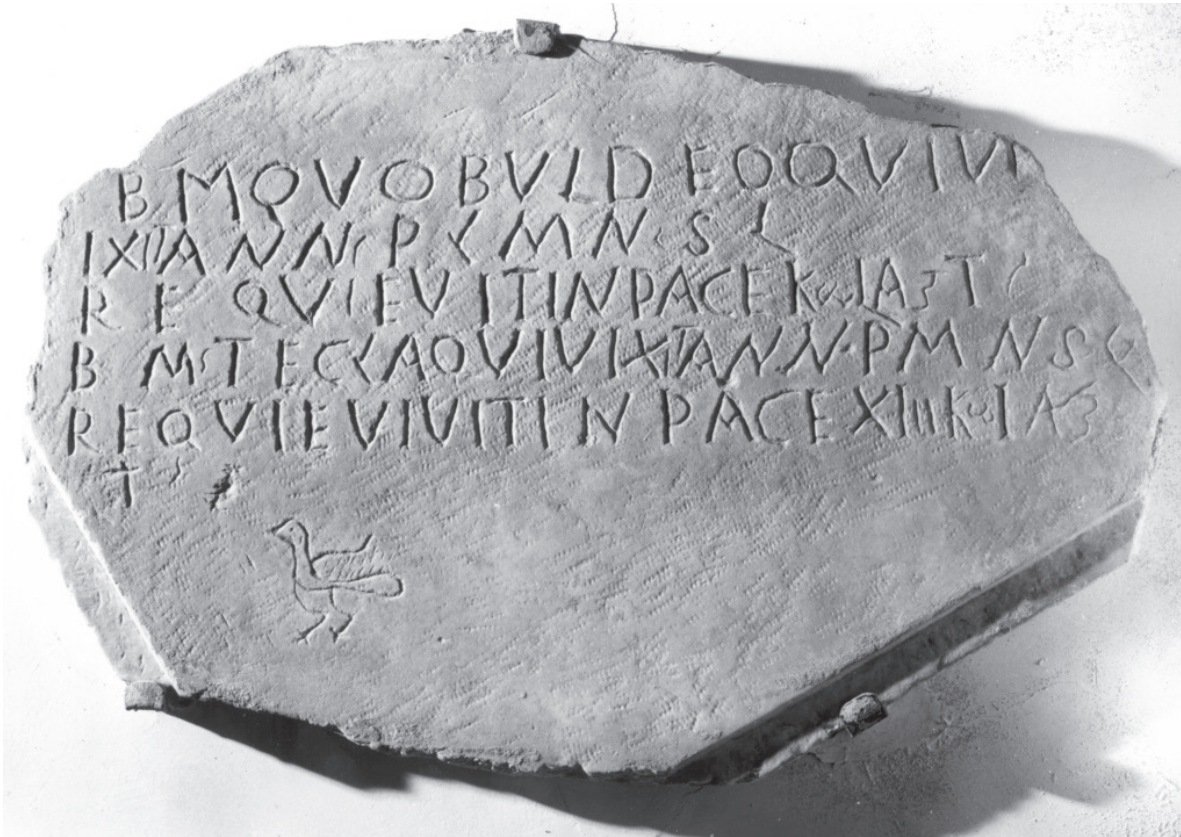 B M QVOBVLDEOQVIVI
IXITANN P L M N S
REQVIEVITINPACE K
B M TECLAQVIVIXITANN P M N S
REQVIEVIVITIN PACE XIIII K
T